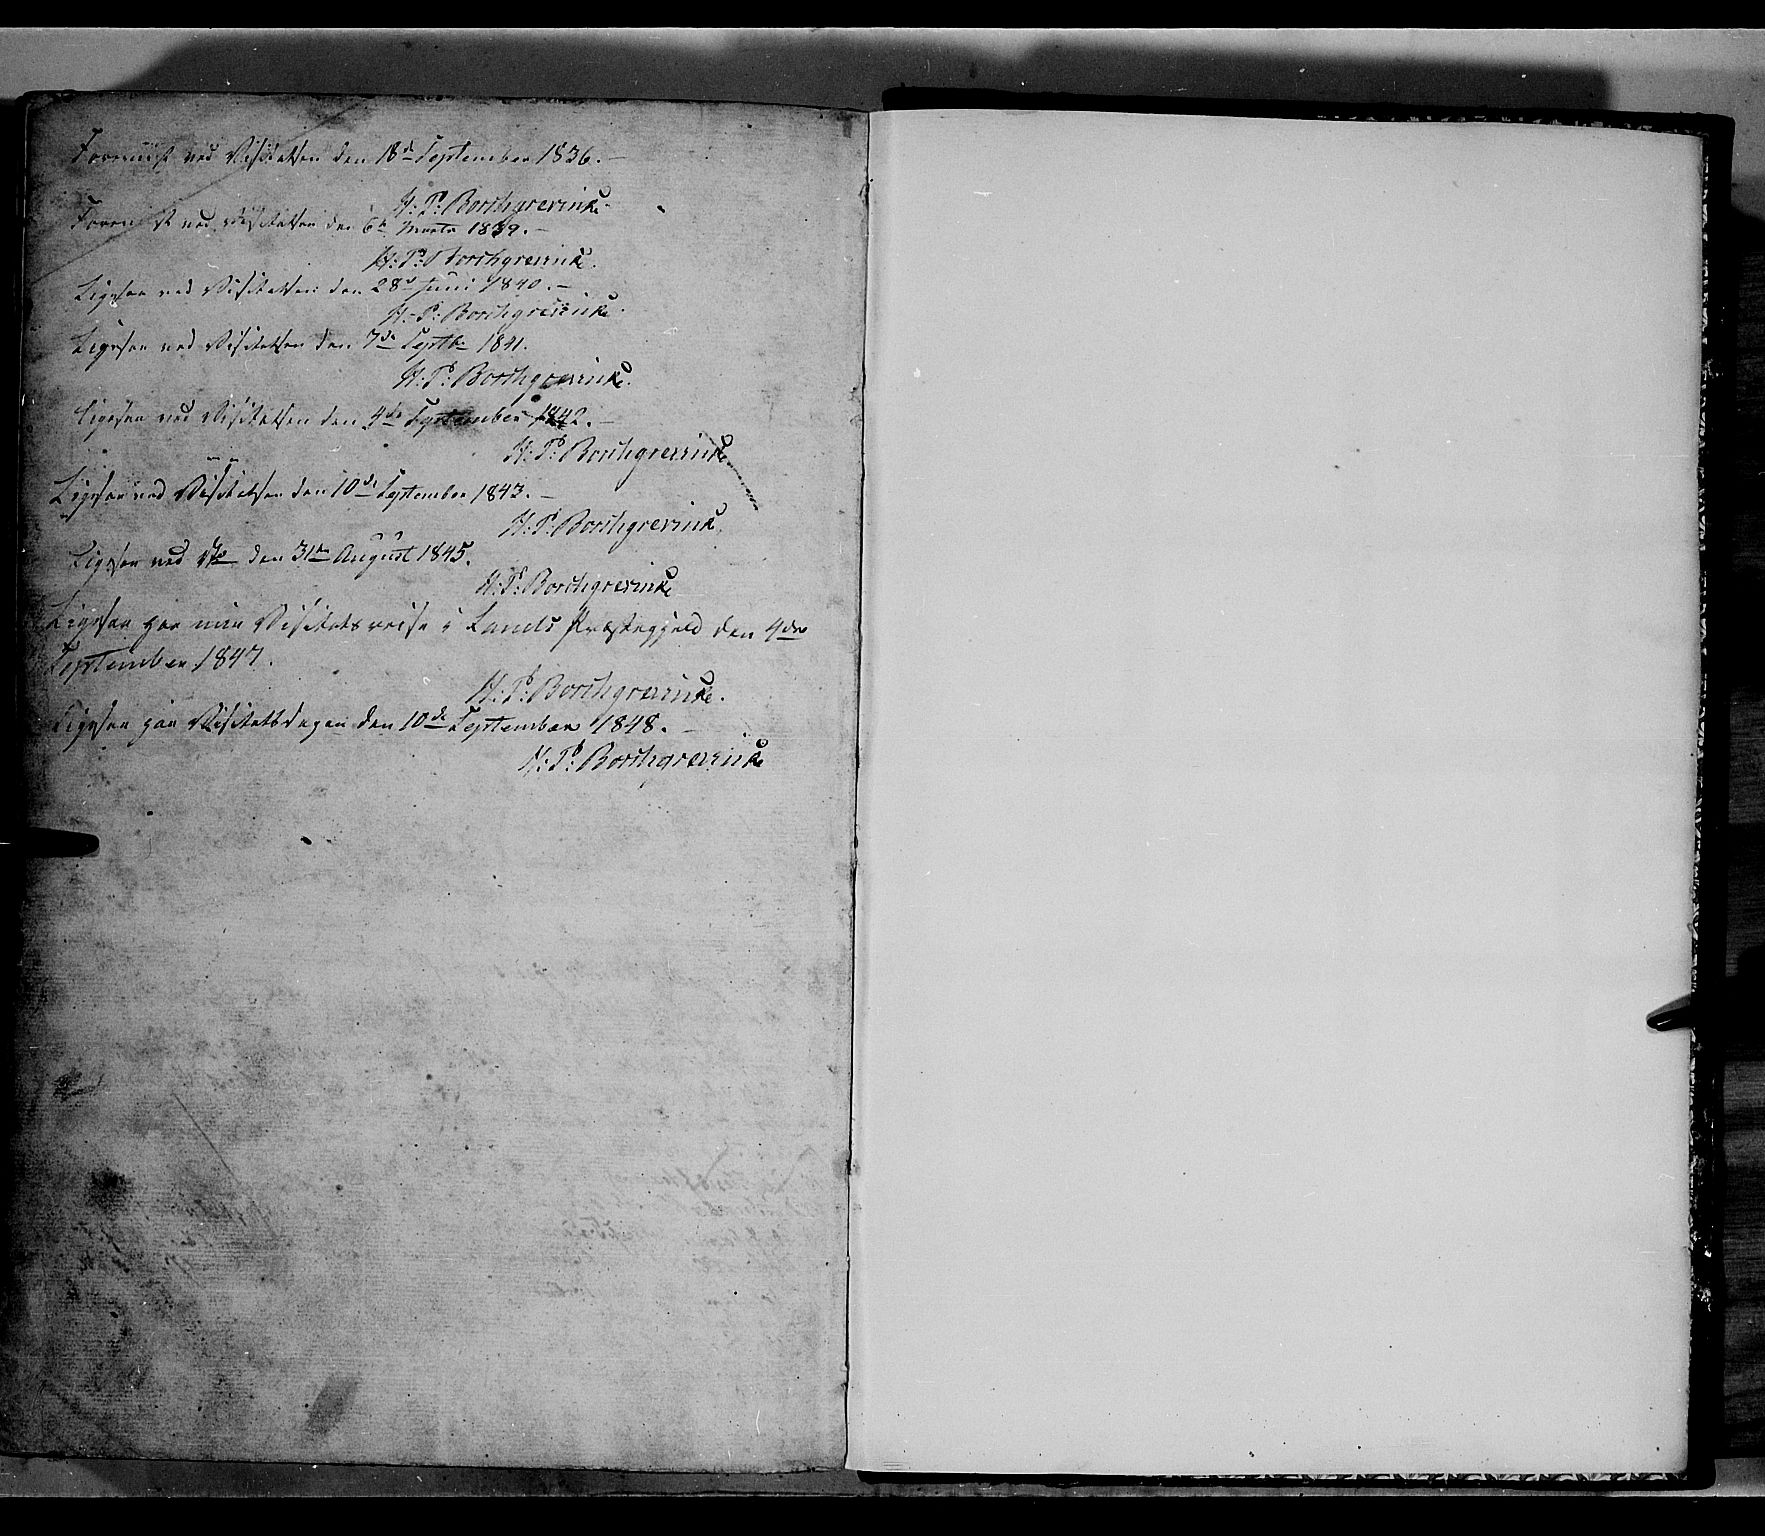 Foreviist ved Visitatsen den 18de September 1836. —
H: P: Borchgrevink
Foreviist ved Visitatsen den 6te Marts 1839. —
H: P: Borchgrevink.
Ligesaa ved Visitatsen den 28de Juni 1840. —
H: P: Borchgrevink.
Ligesaa ved Visitatsen den 7de Septbr 1841.
H: P: Borchgrevink.
Ligesaa ved Visitatsen den 4de September 1842. —
H: P: Borchgrevink
Ligesaa ved Visitatsen den 10de September 1843. —
H: P: Borchgrevink.
Ligesaa ved den 31te August 1845.
H: P: Borchgrevink
Ligesaa paa min Visitatsreise i Lands Præstegjeld den 4de
September 1847.
H: P: Borchgrevink.
Ligesaa paa Visitatsdagen den 10de September 1848. —
H: P: Borchgrevink